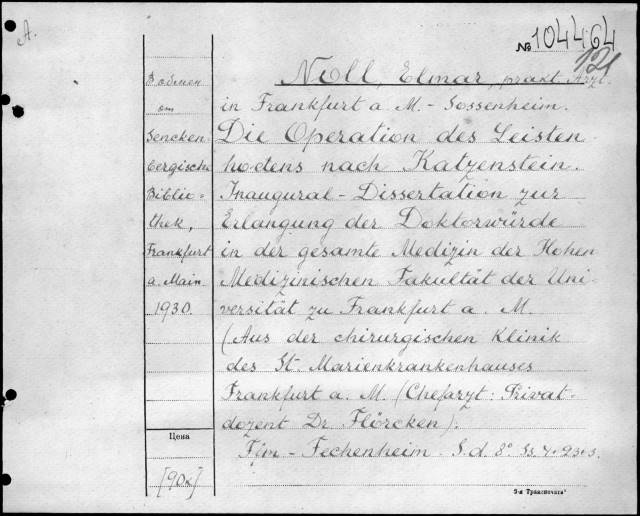 A.
№ 104464
121
Noll, Elmar, prakt. Arzt.
in Frankfurt a. M. - Sossenheim.
Die Operation des Leisten
hodens nach Katzenstein.
Inaugural-Dissertation zur
Erlangung der Doktorwürde
in der gesamte Medizin der Hohen
Medizinischen Fakultät der Uni-
versität zu Frankfurt a. M.
(Aus der chirurgischen Klinik
des St. Marienkrankenhauses
Frankfurt a. M. (Chefarzt: Privat-
dozent Dr. Flörcken).
Ffm - Fechenheim. S. d. 8°
Обмен
от
Sencken
bergische
Biblio-
thek,
Frankfurt
a. Main
1930.
Цена
[90к]
3-я Транспечать